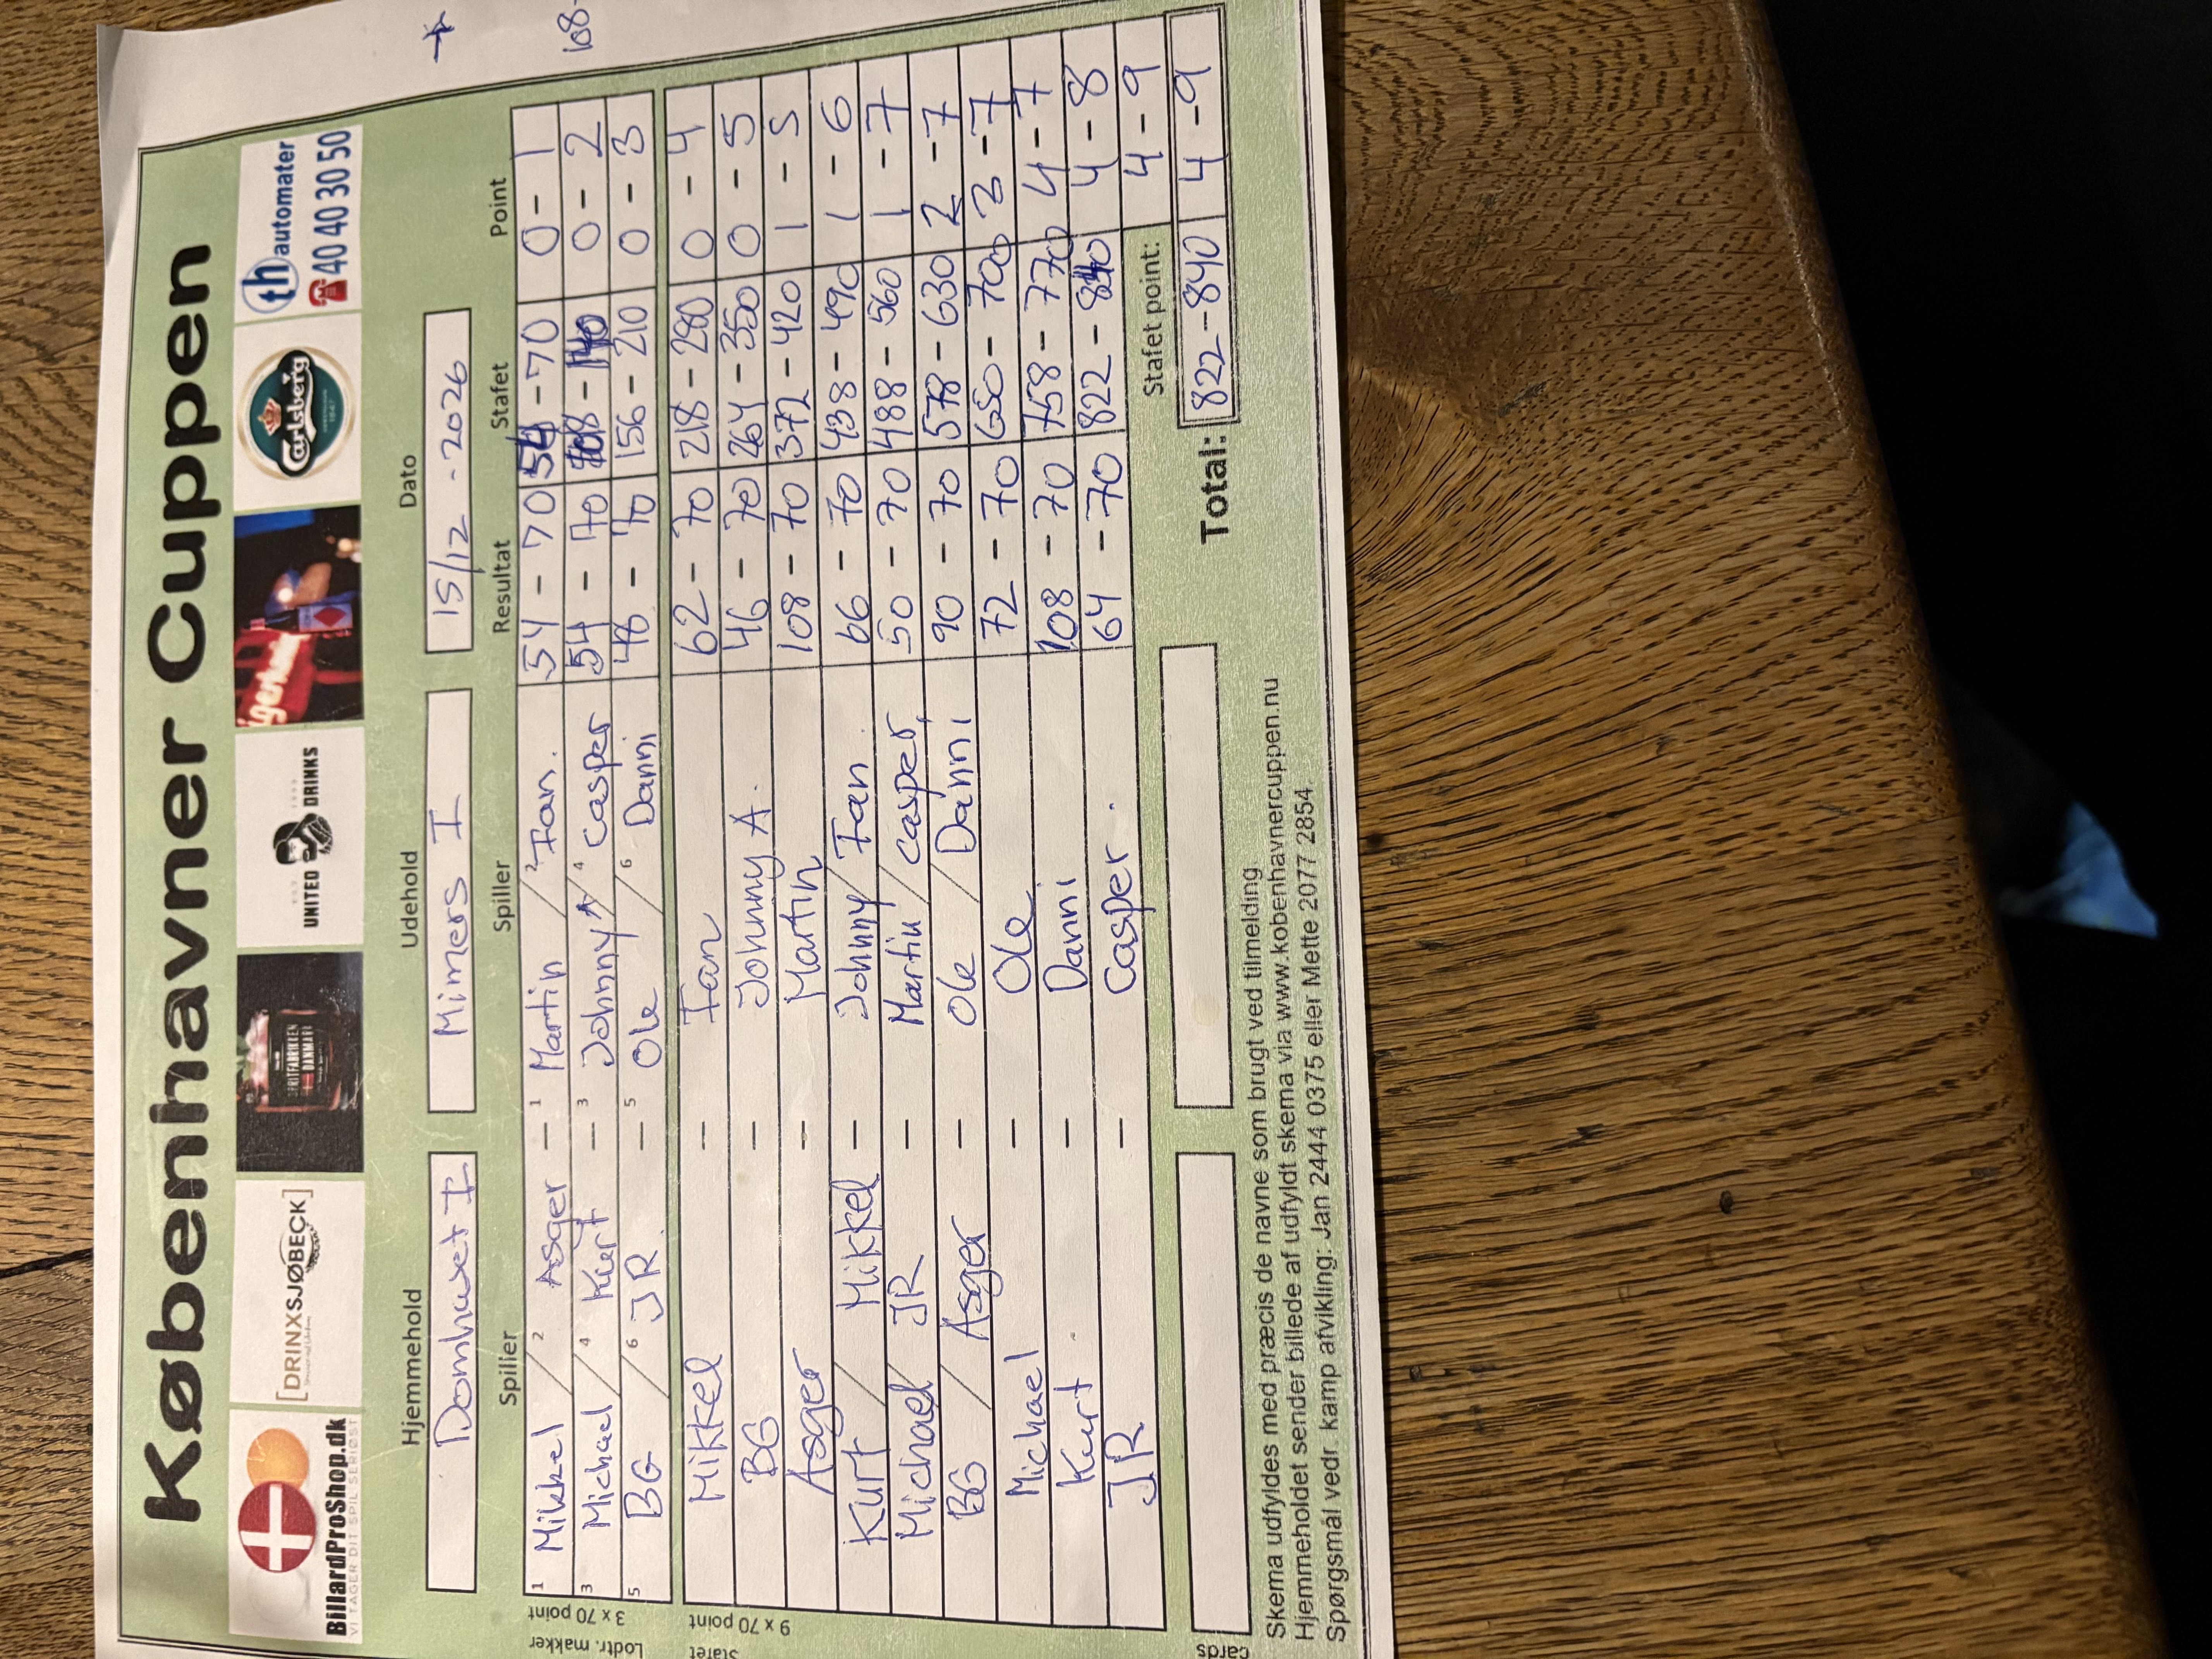 Københavner Cuppen
BillardProShop.dk
VI TAGER DIT SPIL SERIØST
[DRINXSJØBECK]
SPRITFABRIKEN DANMARK
UNITED DRINKS
Carlsberg
th automater
40 40 30 50
Hjemmehold Udehold Dato
Domhuset I Mimers I 15/12 - 2026
Spiller Spiller Resultat Stafet Point
Lodtr. makker
3 x 70 point
1 Mikkel / 2 Asger – 1 Martin / 2 Ian. 54 - 70 54 - 70 0 - 1
3 Michael / 4 Kurt – 3 Johnny A / 4 Casper 54 - 70 108 - 140 0 - 2
5 BG / 6 JR. – 5 Ole / 6 Danni 48 - 70 156 - 210 0 - 3
Stafet
9 x 70 point
Mikkel – Ian 62 - 70 218 - 280 0 - 4
BG – Johnny A. 46 - 70 264 - 350 0 - 5
Asger – Martin 108 - 70 372 - 420 1 - 5
Kurt / Mikkel – Johnny / Ian. 66 - 70 438 - 490 1 - 6
Michael JR – Martin / Casper, 50 - 70 488 - 560 1 - 7
BG / Asger – Ole / Danni 90 - 70 578 - 630 2 - 7
Michael – Ole 72 - 70 650 - 700 3 - 7
Kurt – Danni 108 - 70 758 - 770 4 - 7
JR – Casper. 64 - 70 822 - 840 4 - 8
Stafet point: 4 - 9
cards Total: 822 - 840 4 - 9
Skema udfyldes med præcis de navne som brugt ved tilmelding.
Hjemmeholdet sender billede af udfyldt skema via www.kobenhavnercuppen.nu
Spørgsmål vedr. kamp afvikling: Jan 2444 0375 eller Mette 2077 2854.